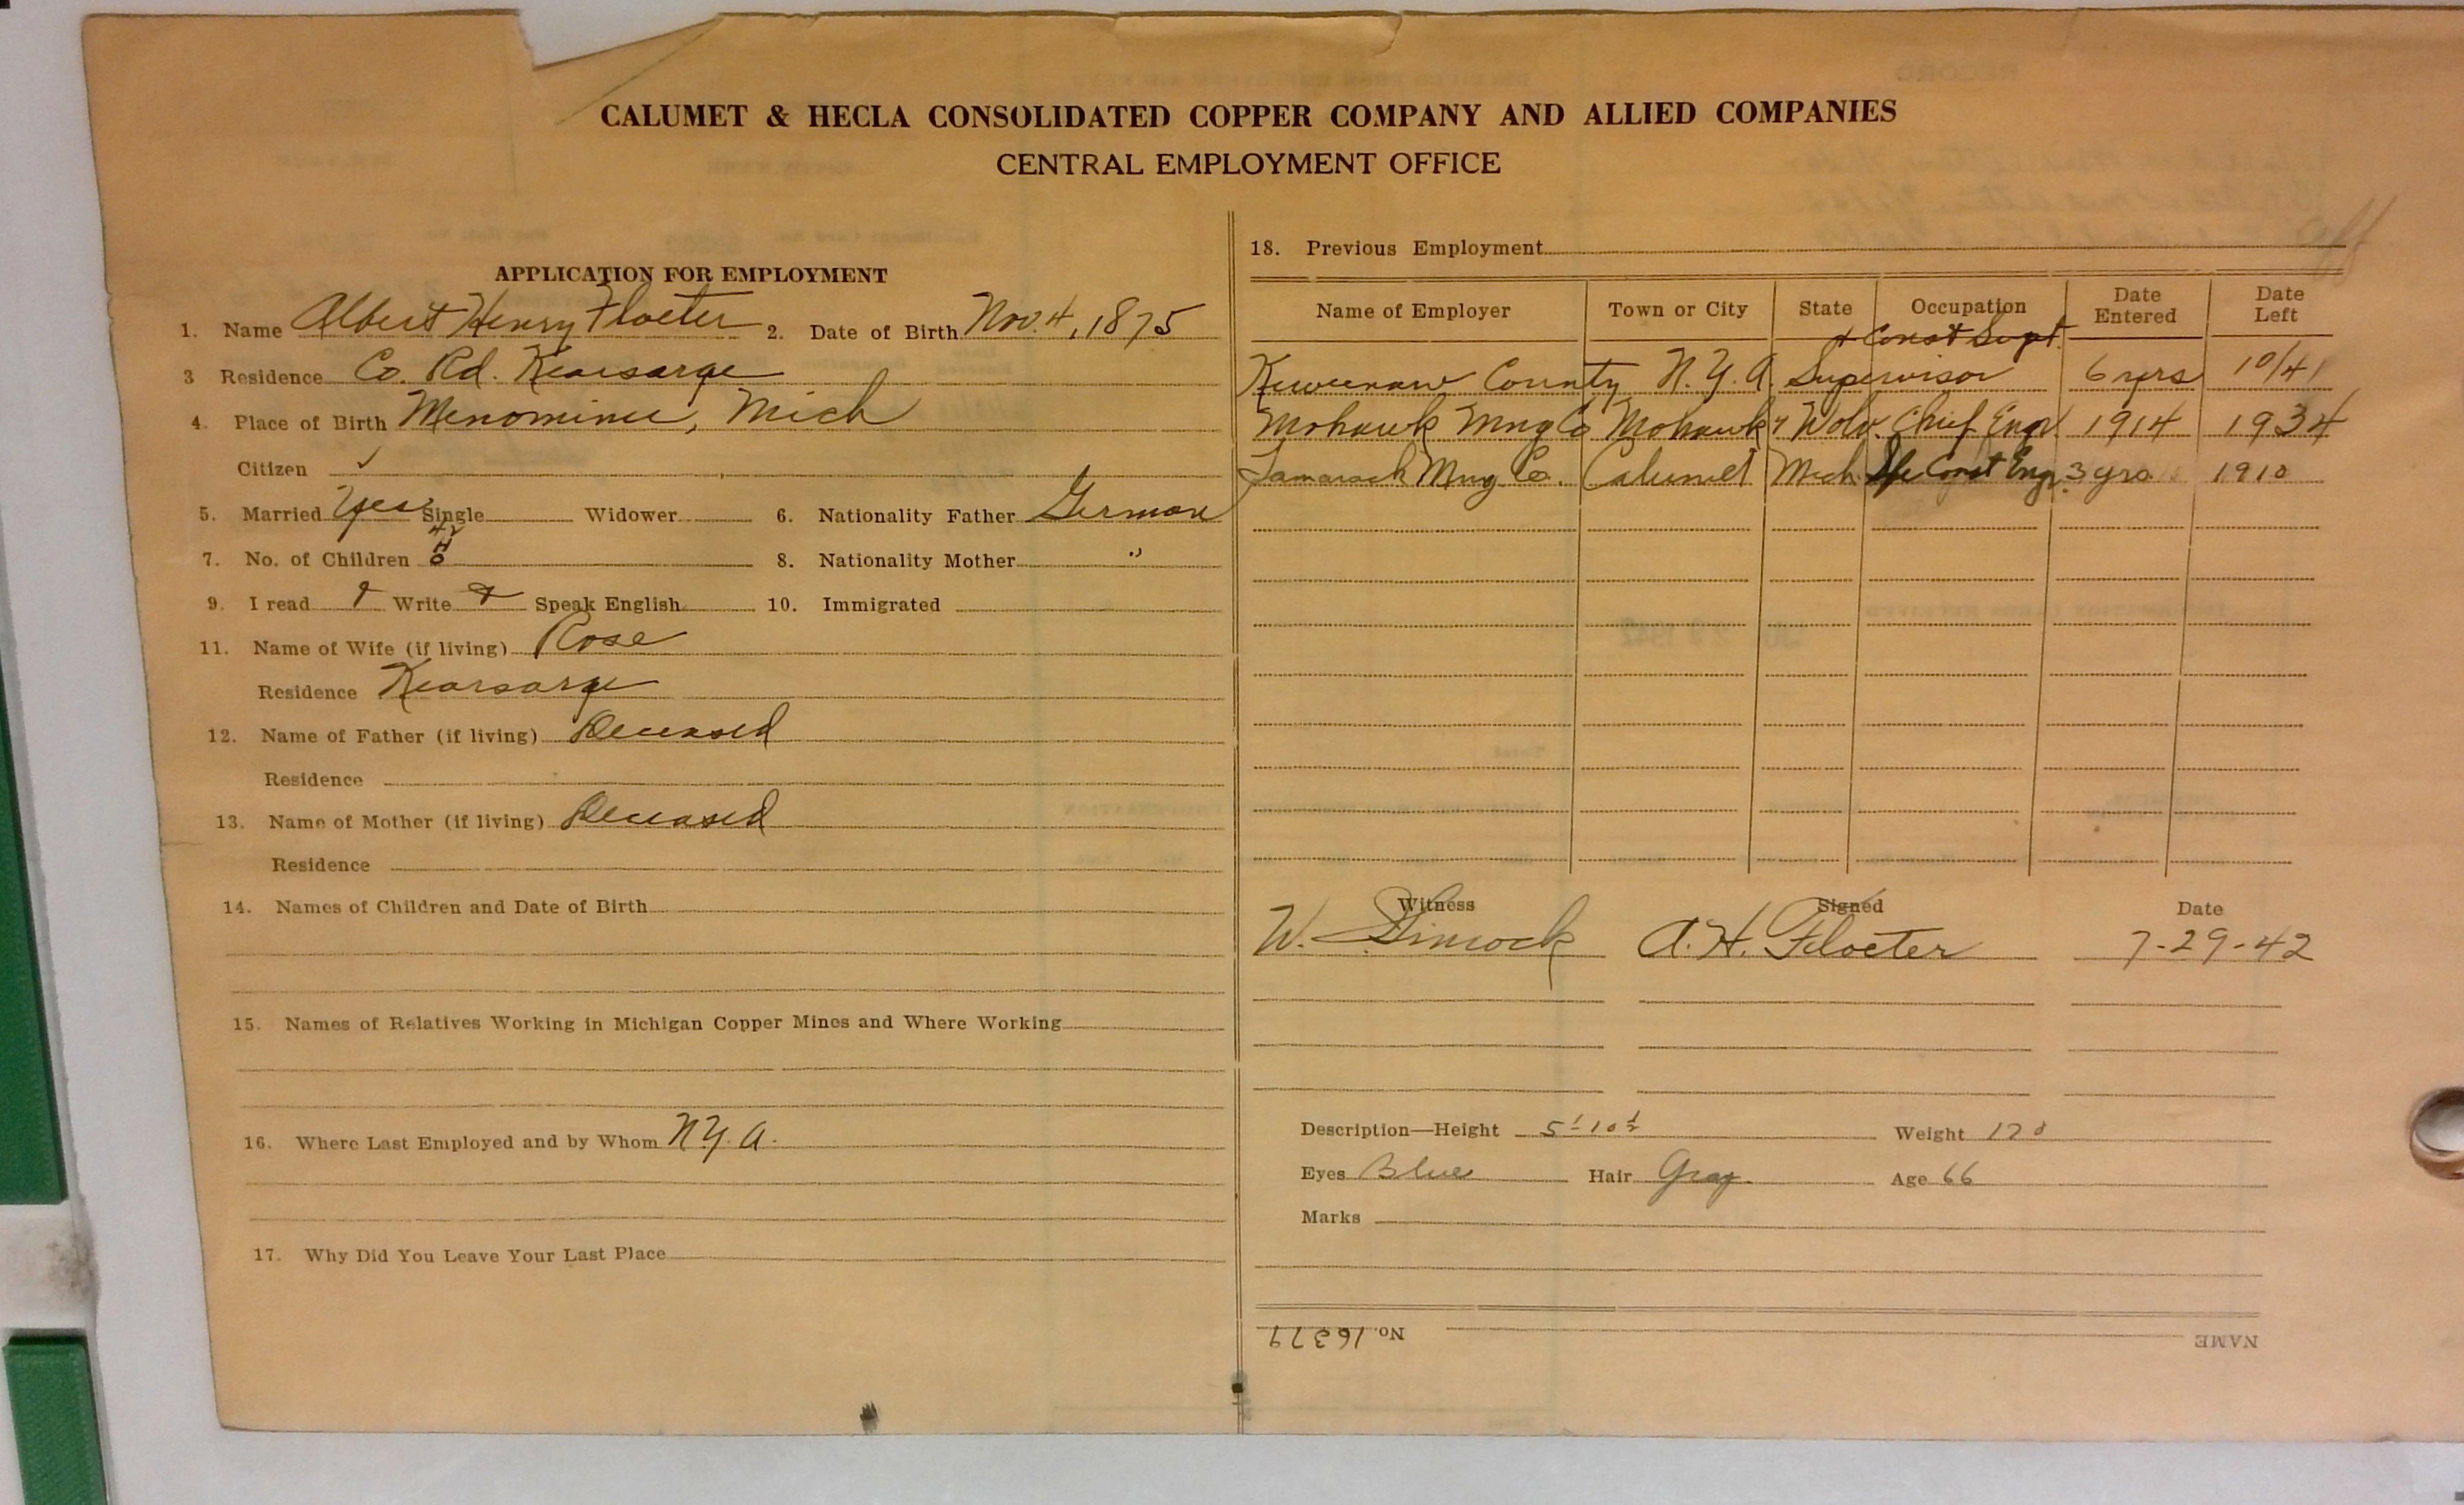 CALUMET & HECLA CONSOLIDATED COPPER COMPANY AND ALLIED COMPANIES
CENTRAL EMPLOYMENT OFFICE
APPLICATION FOR EMPLOYMENT
1. Name Albert Henry Floeter 2. Date of Birth Nov. 4, 1875
3 Residence Co. Rd. Kearsarge
4. Place of Birth Menominee, Mich
Citizen ✓
5. Married Yes Single Widower 6. Nationality Father German
7. No. of Children 8. Nationality Mother "
9. I read Write Speak English 10. Immigrated
11. Name of Wife (if living) Rose
Residence Kearsarge
12. Name of Father (if living) Deceased
Residence
13. Name of Mother (if living) Deceased
Residence
14. Names of Children and Date of Birth
15. Names of Relatives Working in Michigan Copper Mines and Where Working
16. Where Last Employed and by Whom N.Y.A.
17. Why Did You Leave Your Last Place
18. Previous Employment Off
Name of Employer Town or City State Occupation Date Entered Date Left
+ Const Supt.
Keweenaw County N.Y.A. Supervisor 6 yrs 10/41
Mohawk Mng Co Mohawk + Wolv. Chief Engr. 1914 1934
Tamarack Mng Co. Calumet Mich Const Engr. 3 yrs 1910
Witness Signed Date
W. A. H. Floeter 7-29-42
Description—Height 5'-10½ Weight 170
Eyes Blue Hair Gray Age 66
Marks
No. 16379 NAME